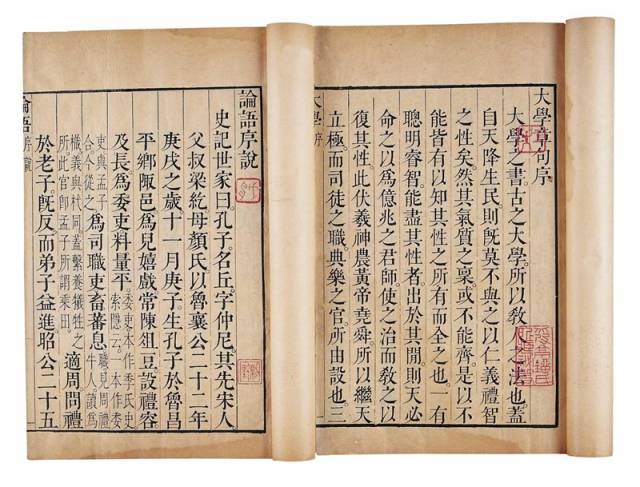 大學章句序
大學之書。古之大學。所以教人之法也。蓋
自天降生民則旣莫不與之以仁義禮智
之性矣。然其氣質之稟。或不能齊。是以不
能皆有以知其性之所有而全之也。一有
聰明睿智。能盡其性者。出於其閒。則天必
命之以爲億兆之君師。使之治而敎之。以
復其性。此伏羲神農黃帝堯舜。所以繼天
立極。而司徒之職。典樂之官。所由設也。三
大學 序
論語序說
史記世家曰。孔子。名丘。字仲尼。其先宋人
父叔梁紇。母顏氏。以魯襄公二十二年
庚戌之歲。十一月庚子。生孔子於魯昌
平鄉陬邑。爲兒嬉戲。常陳俎豆。設禮容
及長。爲委吏。料量平。委吏本作季氏史
索隱云。一本作委
吏。與孟子
合。今從之。爲司職吏。畜蕃息。職見周禮
牛人。讀爲
樴。義與杙同。蓋繫養犧牲之
所。此官卽孟子所謂乘田。適周。問禮
於老子。旣反。而弟子益進。昭公二十五
論語 序說